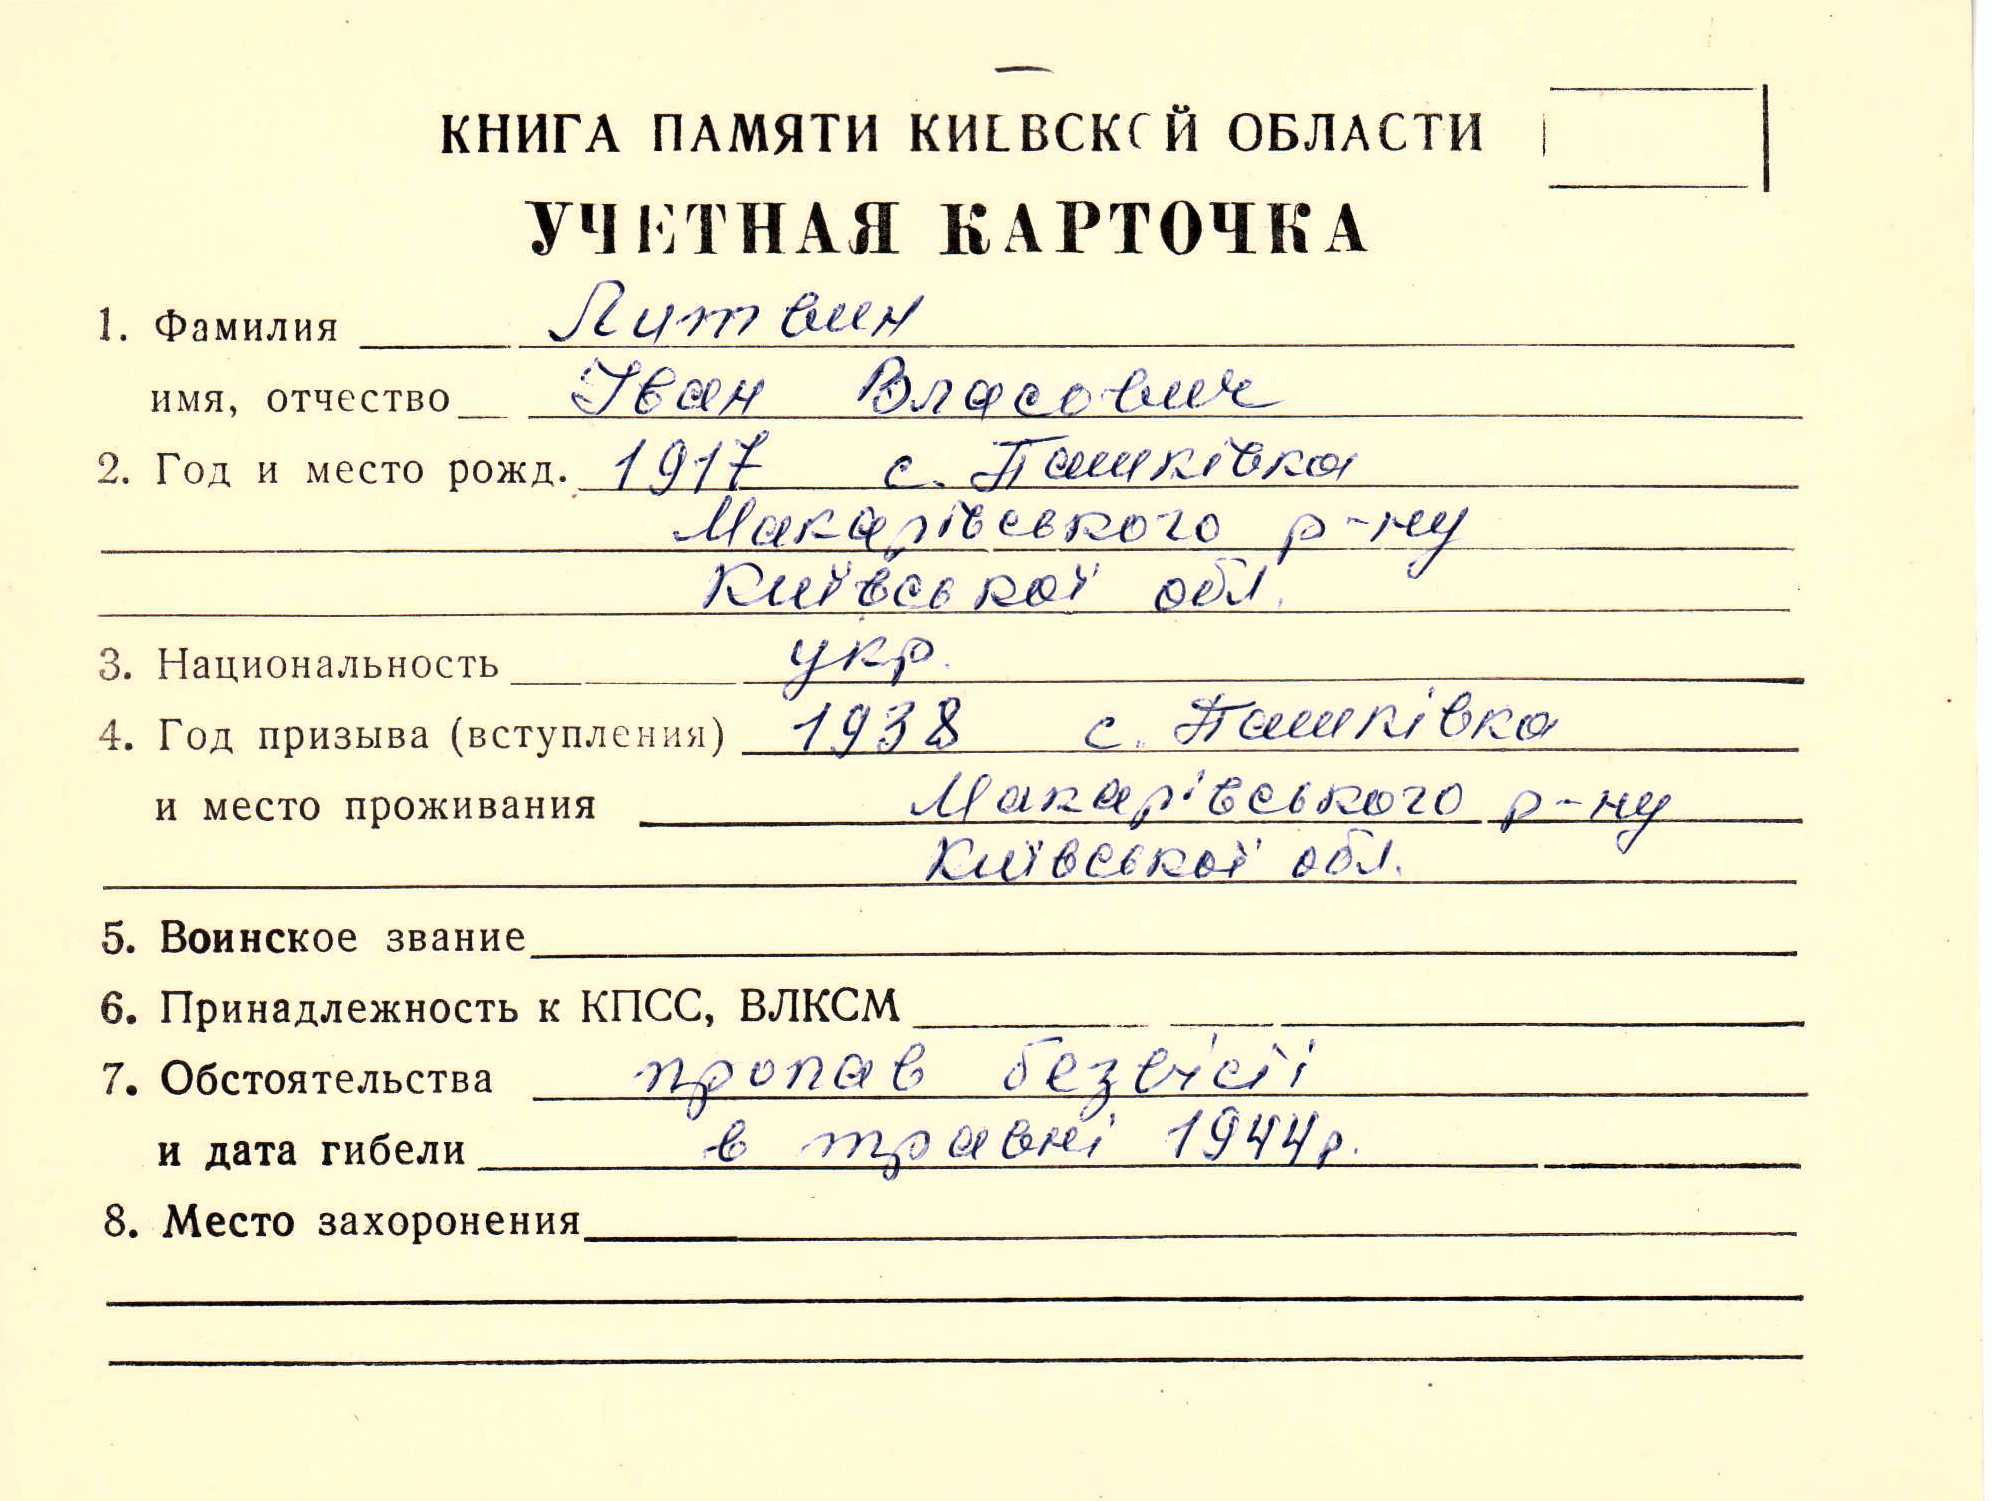 КНИГА ПАМЯТИ КИЕВСКОЙ ОБЛАСТИ
УЧЕТНАЯ КАРТОЧКА
1. Фамилия Литвин
имя, отчество Іван Власович
2. Год и место рожд. 1917 с. Пашківка
Макарівського р-ну
Київської обл.
3. Национальность укр.
4. Год призыва (вступления) 1938 с. Пашківка
и место проживания Макарівського р-ну
Київської обл.
5. Воинское звание
6. Принадлежность к КПСС, ВЛКСМ
7. Обстоятельства пропав безвісті
и дата гибели в травні 1944р.
8. Место захоронения